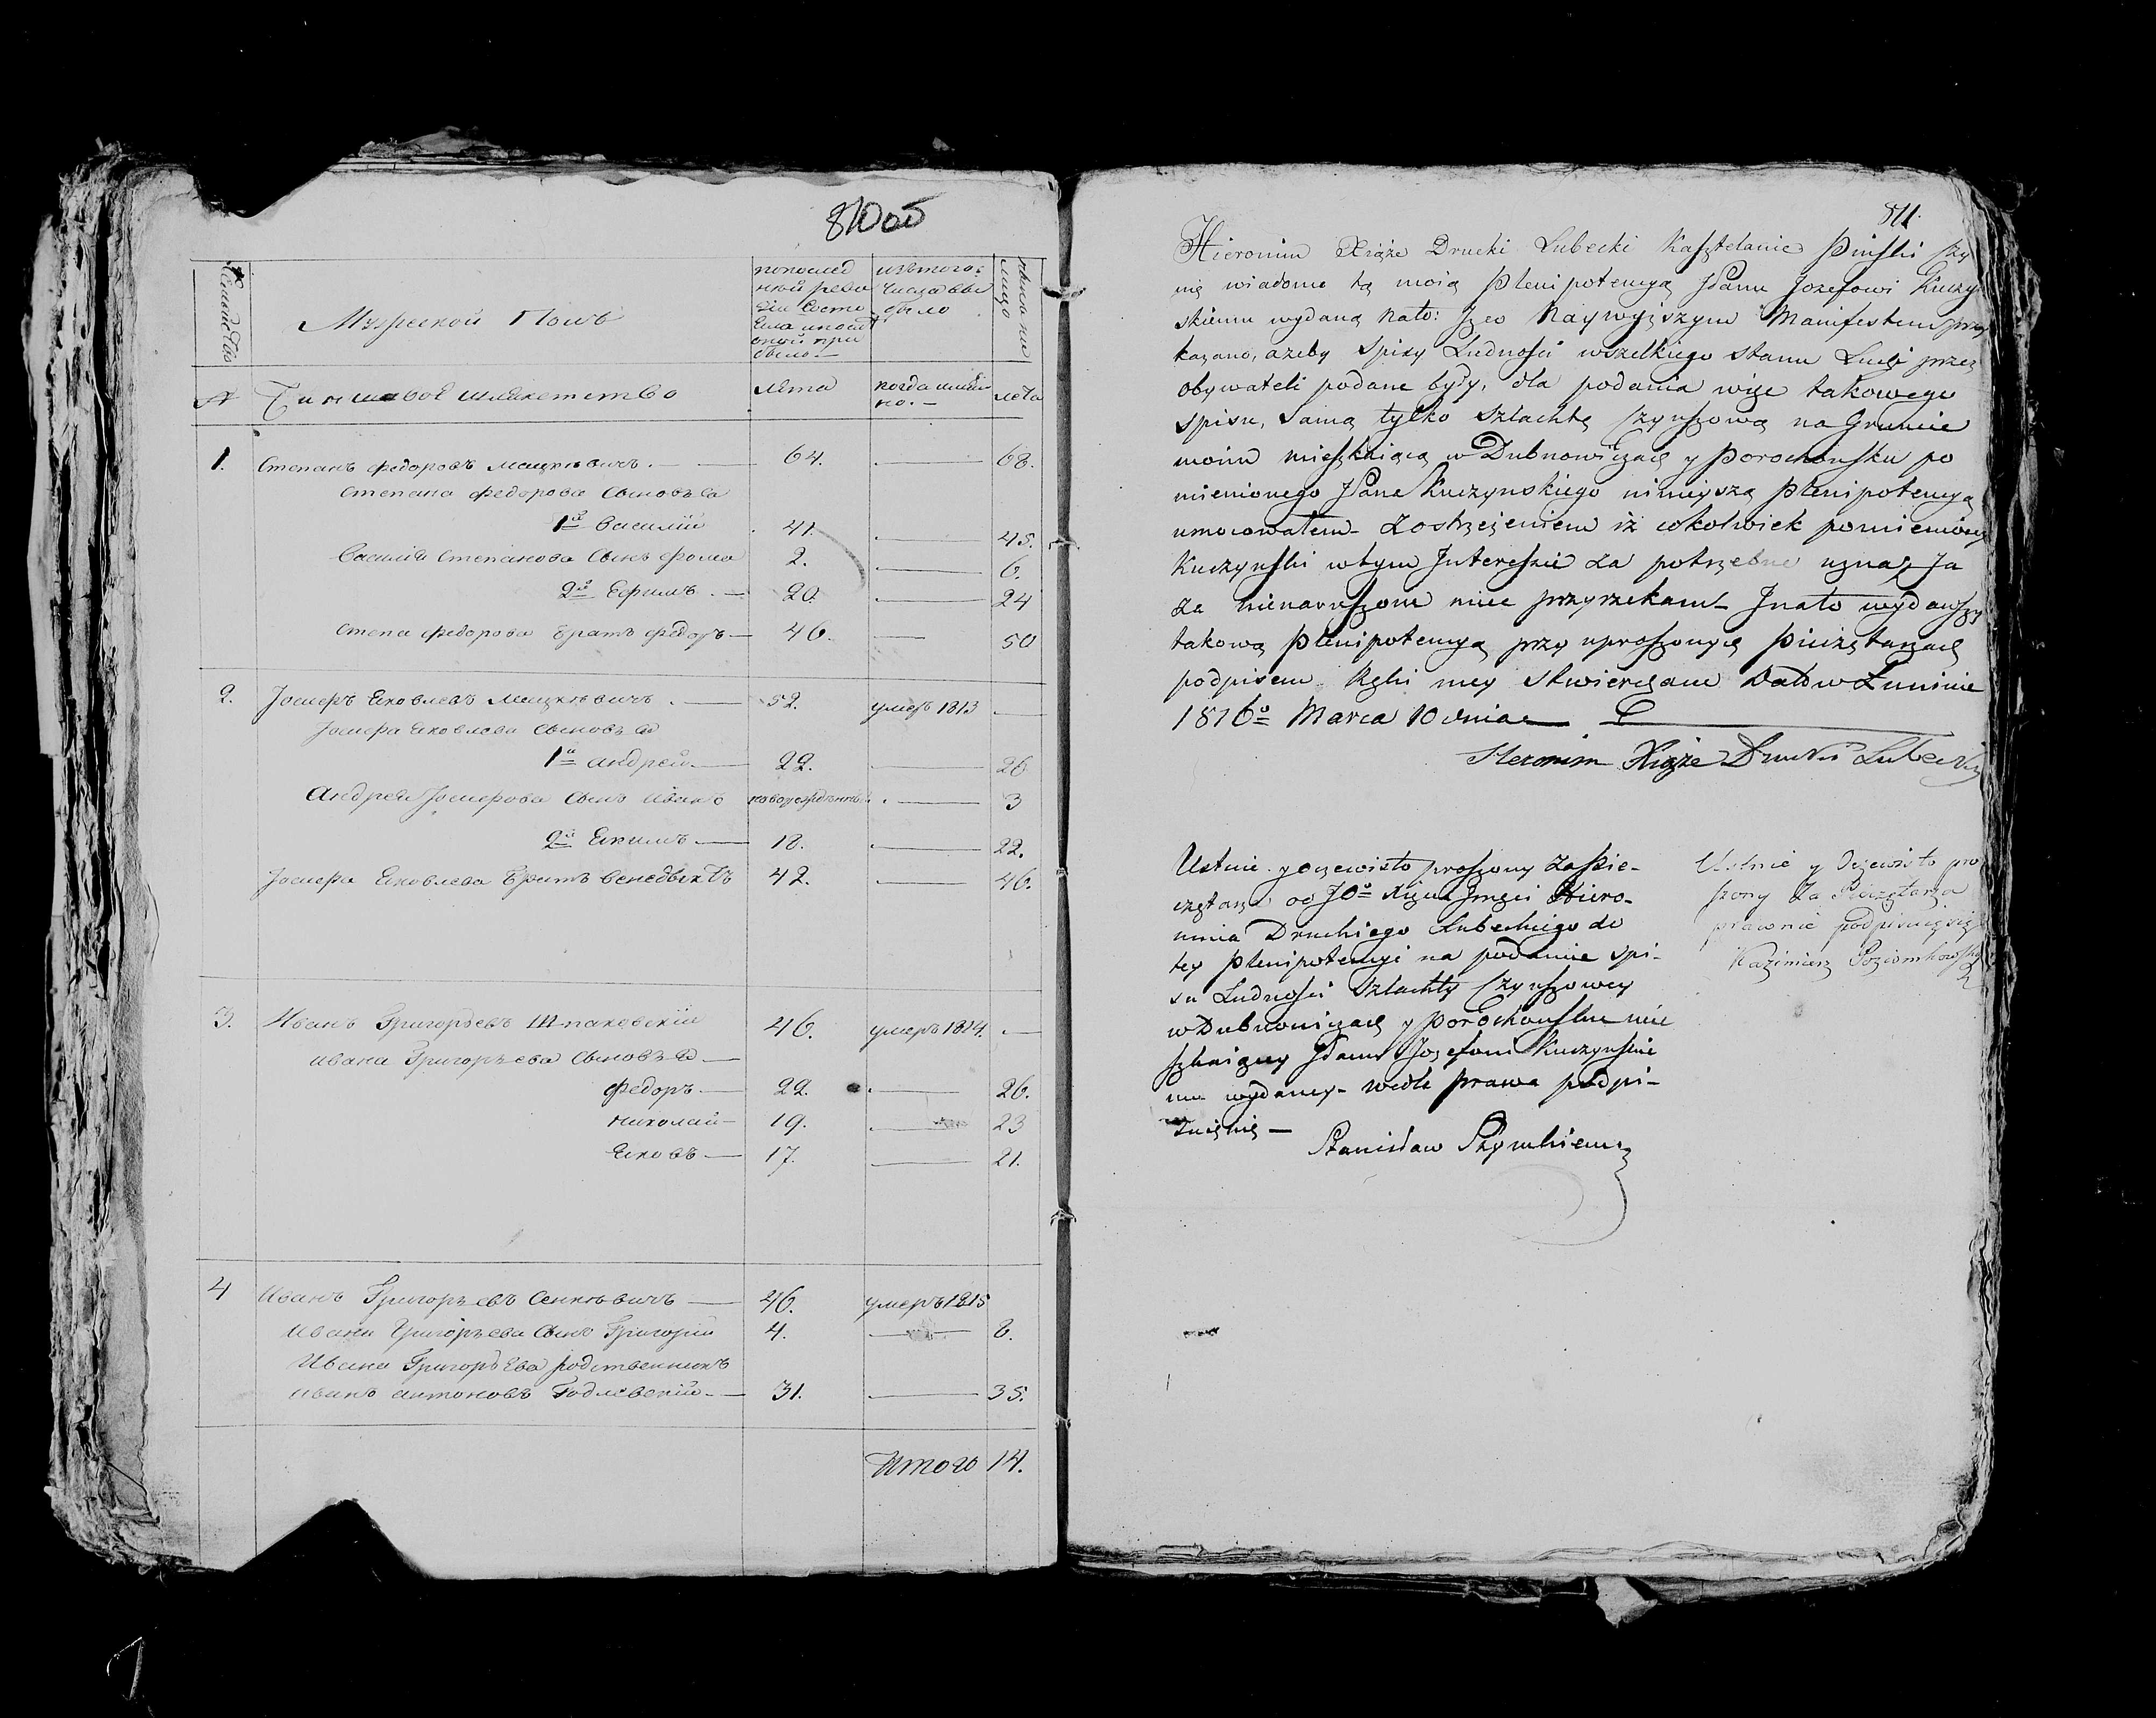 810об
Семейства
Мужеской Полъ
по последней ревизіи состояло и после оной прибыло
изъ того числа выбыло
ныне на лицо
№
Чиншовое шляхетство
лета
когда именно.
лета
1. Степанъ Федоровъ Мацкевичъ. 64. 68.
Степана Федорова сыновья
1й Василий 41. 45.
Василия Степанова сынъ Фома 2. 6.
2й Ефимъ. 20. 24
Степа Федорова братъ Федоръ 46. 50
2. Іосифъ Яковлевъ Мацкевичъ. 52. умеръ 1813
Іосифа Яковлева сыновья
1й Андрей 22. 26
Андрея Іосифова сынъ Иванъ новорожденный. 3
2й Якимъ 18. 22.
Іосифа Яковлева братъ Венедыктъ 42. 46.
3. Иванъ Григорьевъ Шпаковскій 46. умеръ 1814.
Ивана Григорьева сыновья
Федоръ 22. 26.
Николай 19. 23
Яковъ 17. 21.
4 Иванъ Григорьевъ Сенкевичъ 46. умеръ 1815
Ивана Григорьева сынъ Григорій 4. 8.
Ивана Григорьева родственникъ
Иванъ Антоновъ Годлевскій 31. 35.
Итого 14.
811.
Hieronim Xiąże Drucki Lubecki Kasztelanic Piński Czy
nię wiadomo tą moią Plenipotencyą JPanu Jozefowi Kuczyń
skiemu wydaną nato: Jż Naywyższym Manifestem przy
kazano, ażeby Spisy Ludności wszelkiego stanu Ludzi przez
Obywateli podane były, dla podania więc takowego
spisu, Samą tylko Szlachtę Czynszową na Gruncie
moim mieszkaiącą w Dubnowiczach y Porochońsku po
mienionego JPana Kuczynskiego ninieyszą Plenipotencyą
umocowałem Zostrzeżeniem iż cokolwiek pomieniony
Kuczyński wtym Jnteressie za potrzebne uzna, Ja
za nienaruszone miec przyrzekam Jnato wydawszy
takową Plenipotencyą przy uproszonych Pieczętarzach
podpisem Ręki mey stwierdzam Dat w Łuninie
1816o Marca 10 dnia
Hieronim Xiąże Drucki Lubecki
Ustnie y oczewisto proszony za Pie-
czętarza od JO Xięcia Jmści Hiero-
nima Druckiego Lubeckiego do
tey Plenipotencyi na podanie spi-
su Ludności Szlachty Czynszowey
w Dubnowiczach y Porochońsku mie
szkaiącey JPanu Jozefowi Kuczyńskie
mu wydaney wedle prawa podpi-
suię się
Stanisław Szymkiewicz
Ustnie y Oczewisto pro
szony za Pieczętarza
prawnie podpisuię się
Kazimierz Poziomkowski